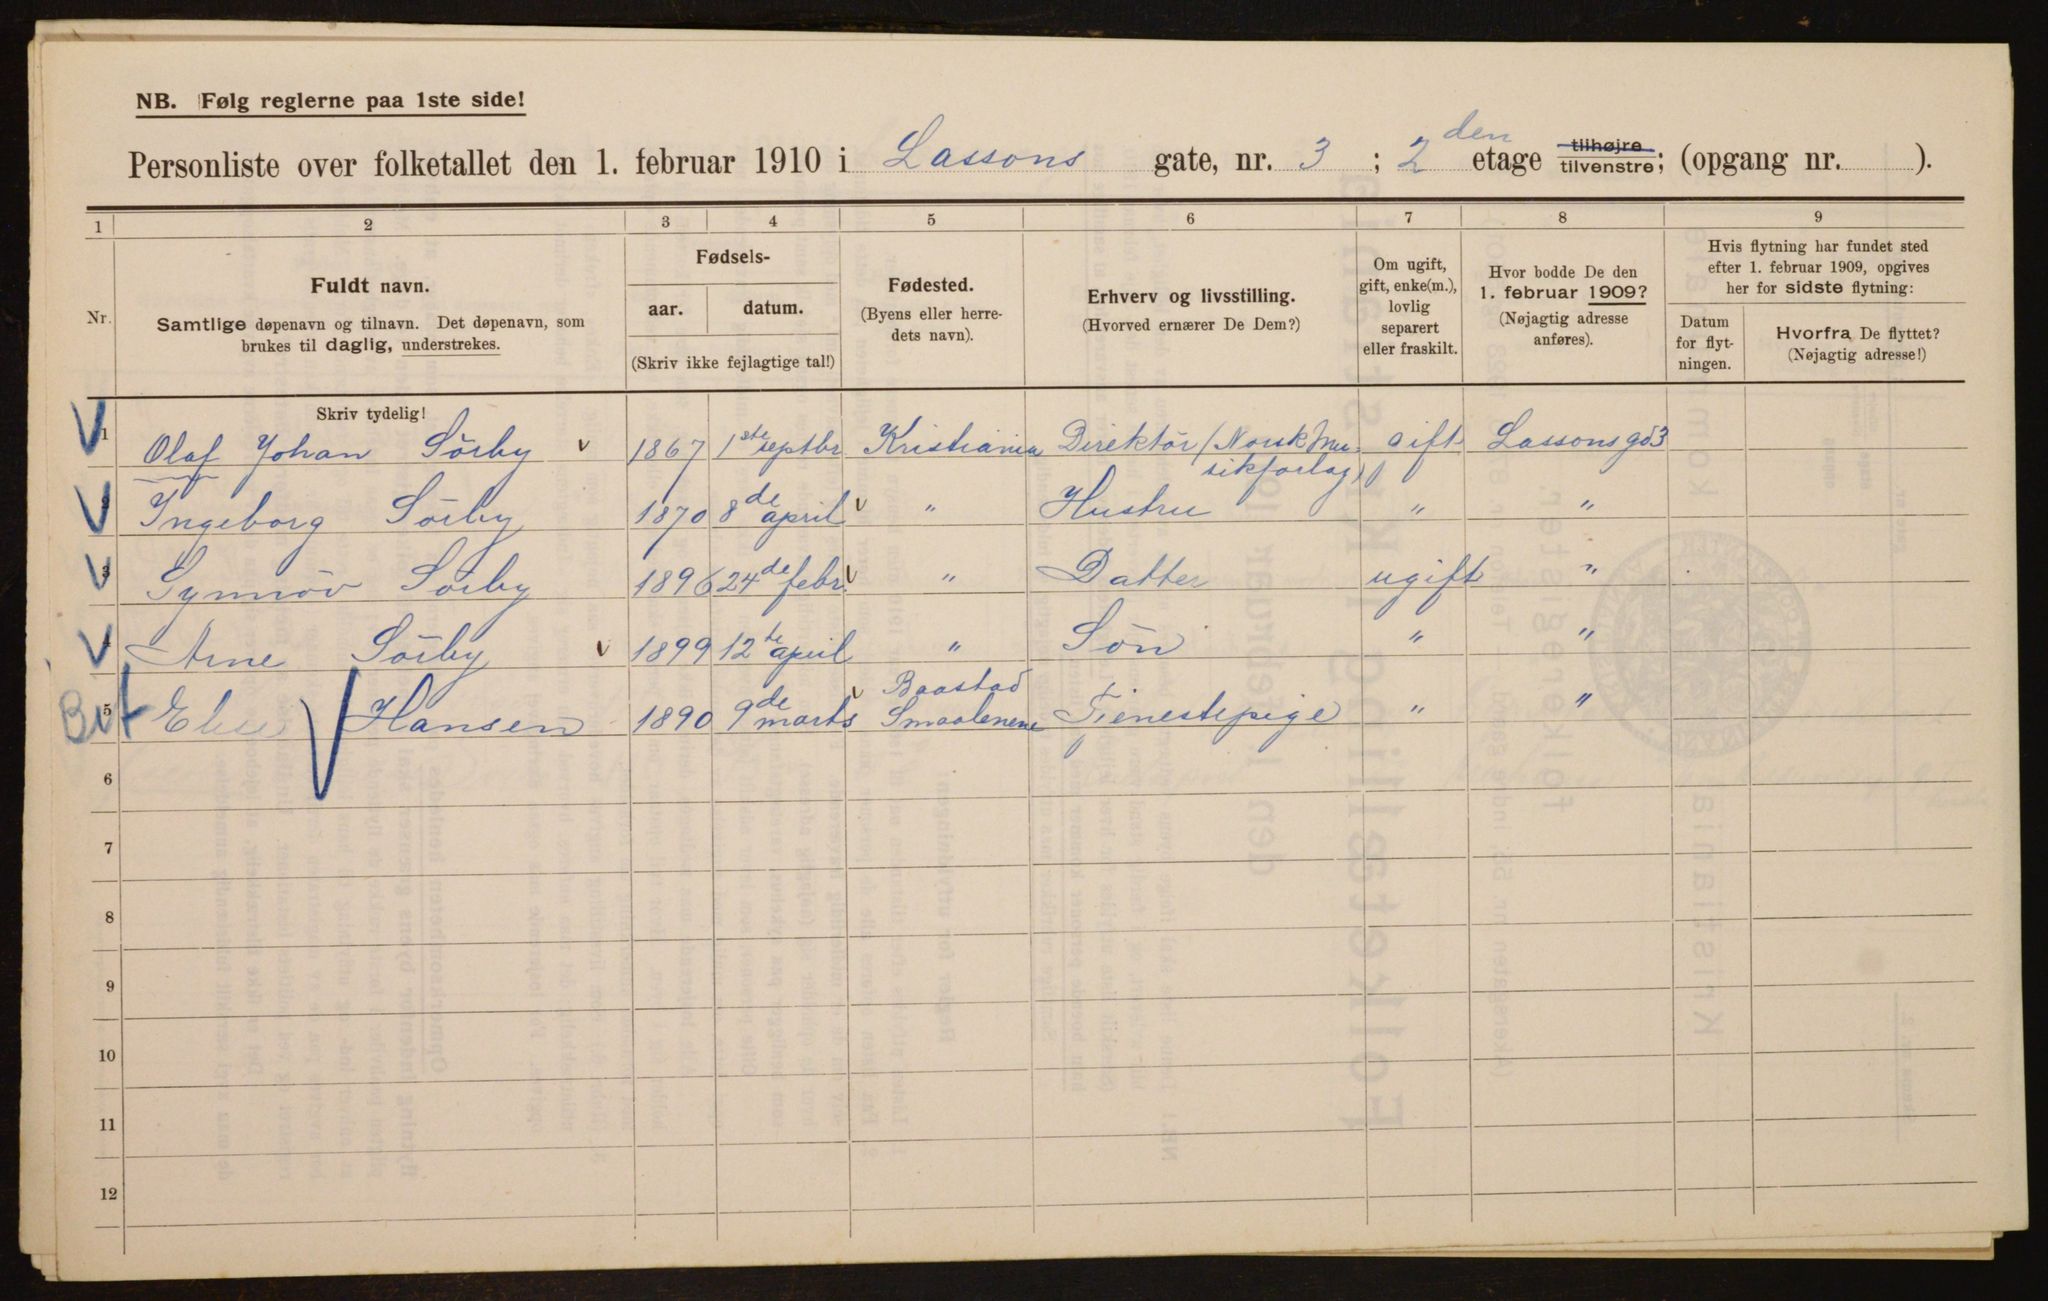 NB. Følg reglerne paa 1ste side!
Personliste over folketallet den 1. februar 1910 i Lassons gate, nr. 3 ; 2den etage tilhøjre tilvenstre; (opgang nr. ).
1 2 3 4 5 6 7 8 9
Nr.
Fuldt navn.
Samtlige døpenavn og tilnavn. Det døpenavn, som
brukes til daglig, understrekes.
Fødsels-
aar. datum.
(Skriv ikke fejlagtige tal!)
Fødested.
(Byens eller herre-
dets navn).
Erhverv og livsstilling.
(Hvorved ernærer De Dem?)
Om ugift,
gift, enke(m.),
lovlig
separert
eller fraskilt.
Hvor bodde De den
1. februar 1909?
(Nøjagtig adresse
anføres).
Hvis flytning har fundet sted
efter 1. februar 1909, opgives
her for sidste flytning:
Datum
for flyt-
ningen.
Hvorfra De flyttet?
(Nøjagtig adresse!)
Skriv tydelig!
1 Olaf Johan Sörby 1867 1ste septbr Kristiania Direktör (Norsk Mu-
sikforlag) gift Lassons gd 3
2 Ingeborg Sörby 1870 8de april " Hustru " "
3 Synnöv Sörby 1896 24de febr. " Datter ugift "
4 Arne Sörby 1899 12te april " Sön " "
5 Elise Hansen 1890 9de marts Baastad
Smaalenene Tjenestepige " "
6
7
8
9
10
11
12